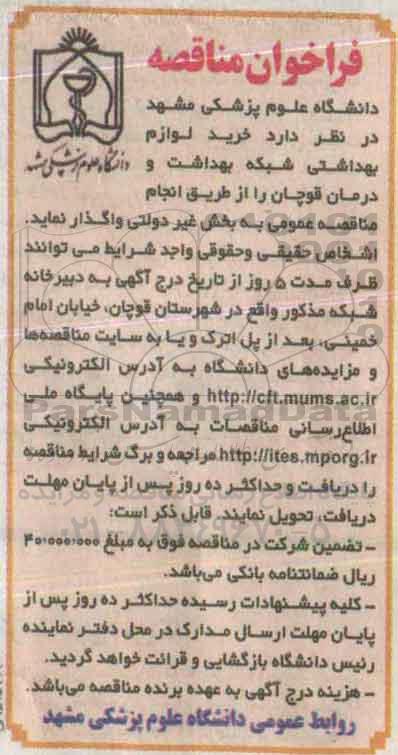 فراخوان مناقصه
دانشگاه علوم پزشکی مشهد
دانشگاه علوم پزشکی مشهد
در نظر دارد خرید لوازم
بهداشتی شبکه بهداشت و
درمان قوچان را از طریق انجام
مناقصه عمومی به بخش غیر دولتی واگذار نماید.
اشخاص حقیقی وحقوقی واجد شرایط می توانند
ظرف مدت ۵ روز از تاریخ درج آگهی به دبیرخانه
شبکه مذکور واقع در شهرستان قوچان، خیابان امام
خمینی، بعد از پل اترک و یا به سایت مناقصه‌ها
و مزایده‌های دانشگاه به آدرس الکترونیکی
http://cft.mums.ac.ir و همچنین پایگاه ملی
اطلاع‌رسانی مناقصات به آدرس الکترونیکی
http://ites.mporg.ir مراجعه و برگ شرایط مناقصه
را دریافت و حداکثر ده روز پس از پایان مهلت
دریافت، تحویل نمایند. قابل ذکر است:
- تضمین شرکت در مناقصه فوق به مبلغ ۴۰/۰۰۰/۰۰۰
ریال ضمانتنامه بانکی می‌باشد.
- کلیه پیشنهادات رسیده حداکثر ده روز پس از
پایان مهلت ارسال مدارک در محل دفتر نماینده
رئیس دانشگاه بازگشایی و قرائت خواهد گردید.
- هزینه درج آگهی به عهده برنده مناقصه می‌باشد.
روابط عمومی دانشگاه علوم پزشکی مشهد
ParsNamadData